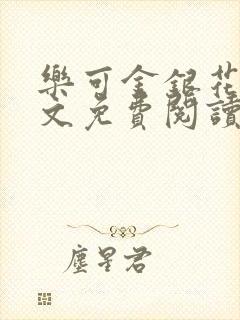 樂可金銀花
文免費閱讀
塵星君